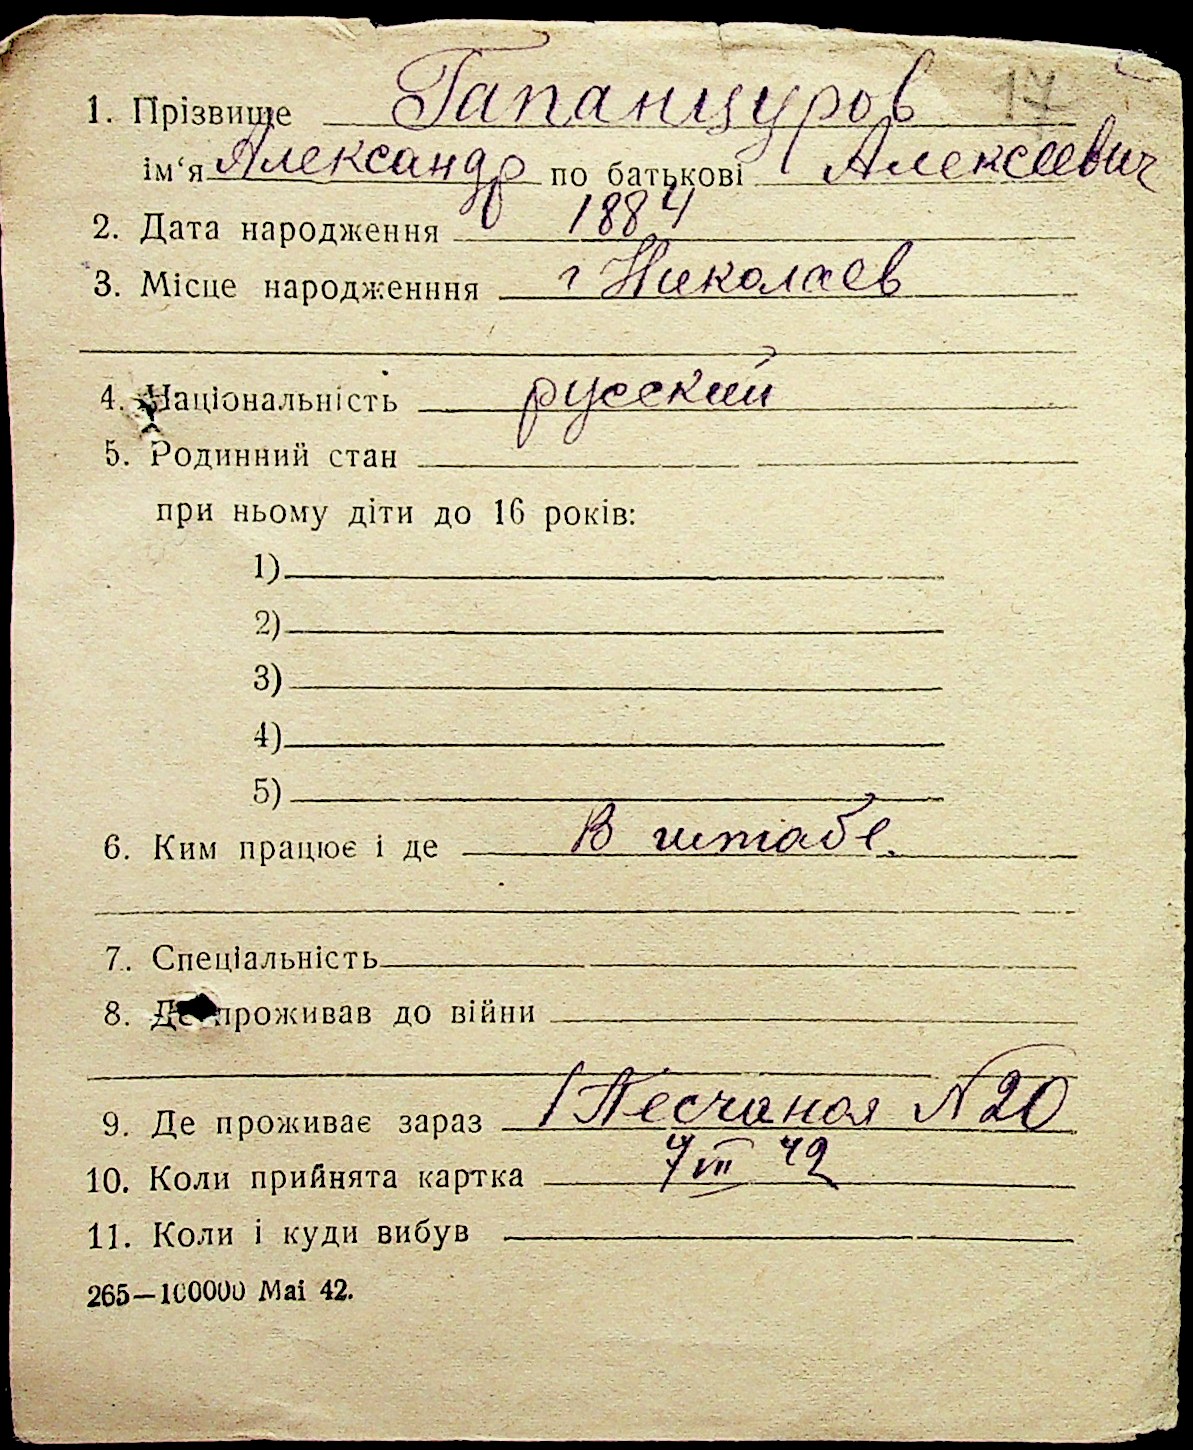 17
1. Прізвище Гапанцуров
ім‘я Александр по батькові Алексеевич
2. Дата народження 1884
3. Місце народженння г Николаев
4. Національність русский
5. Родинний стан
при ньому діти до 16 років:
1)
2)
3)
4)
5)
6. Ким працює і де В штабе.
7. Спеціальність
8. Де проживав до війни
9. Де проживає зараз 1 Песчаная N 20
10. Коли прийнята картка 7 VII 42
11. Коли і куди вибув
265—100000 Mai 42.